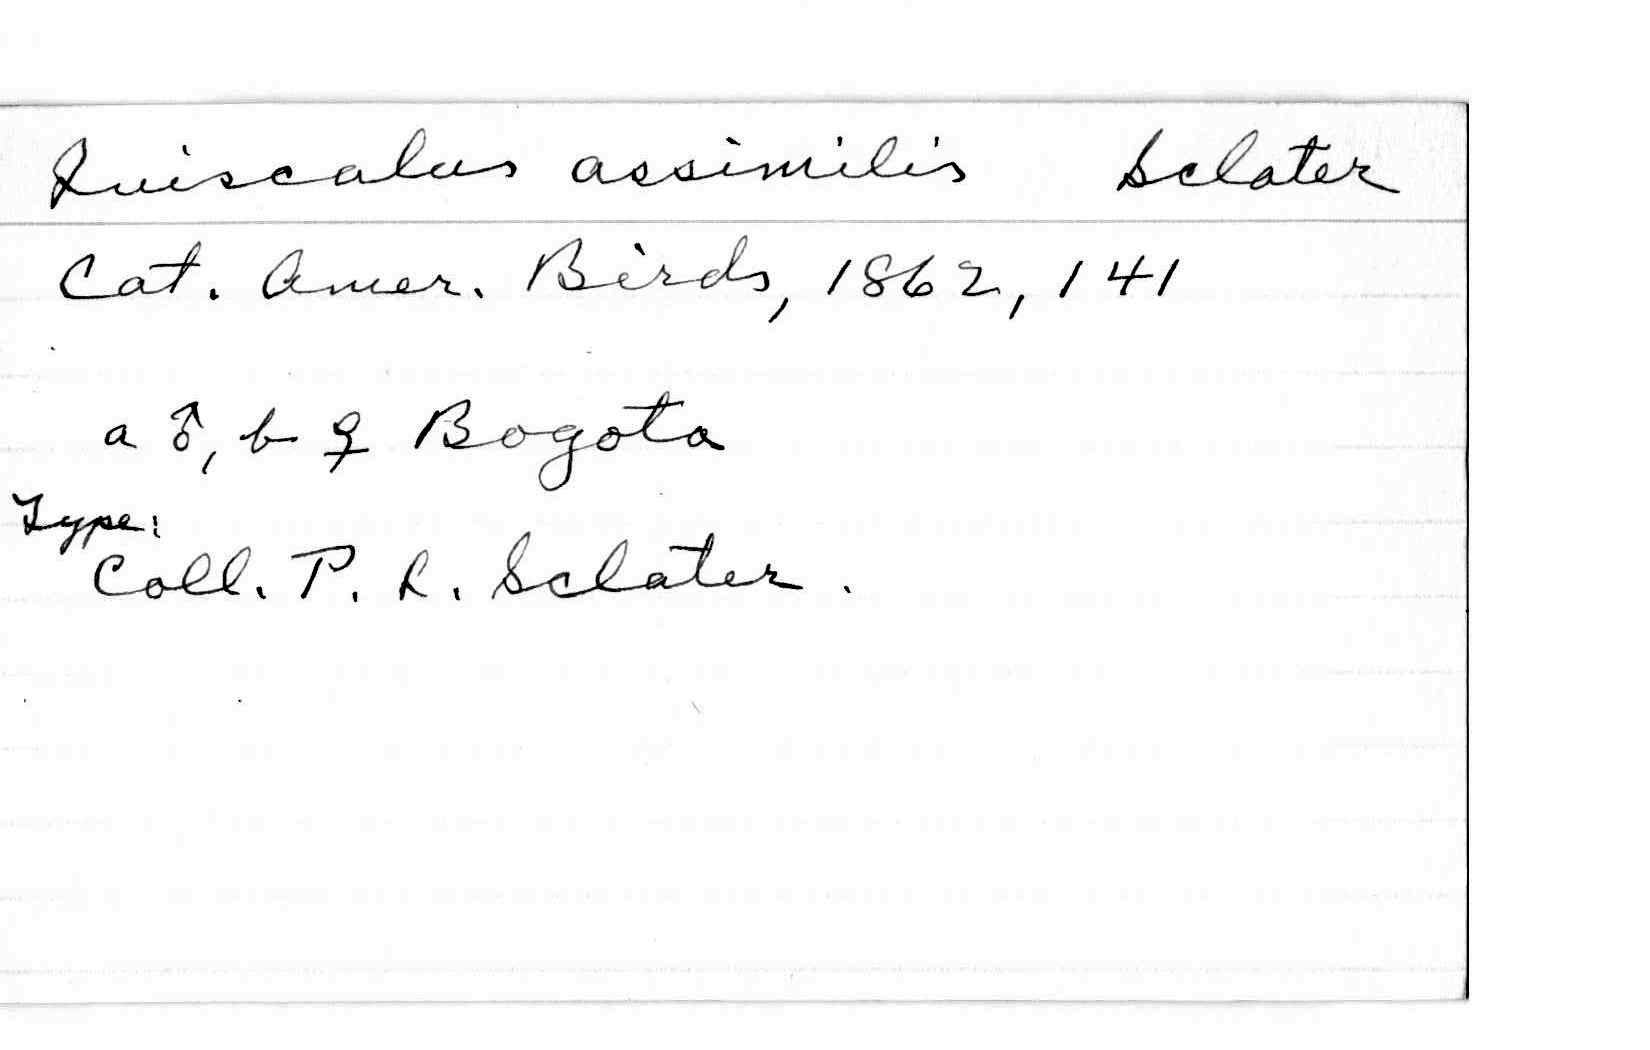 Quiscalus assimilis Sclater
Cat. Amer. Birds, 1862, 141
a ♂, b ♀ Bogota
Type:
Coll. P. L. Sclater.